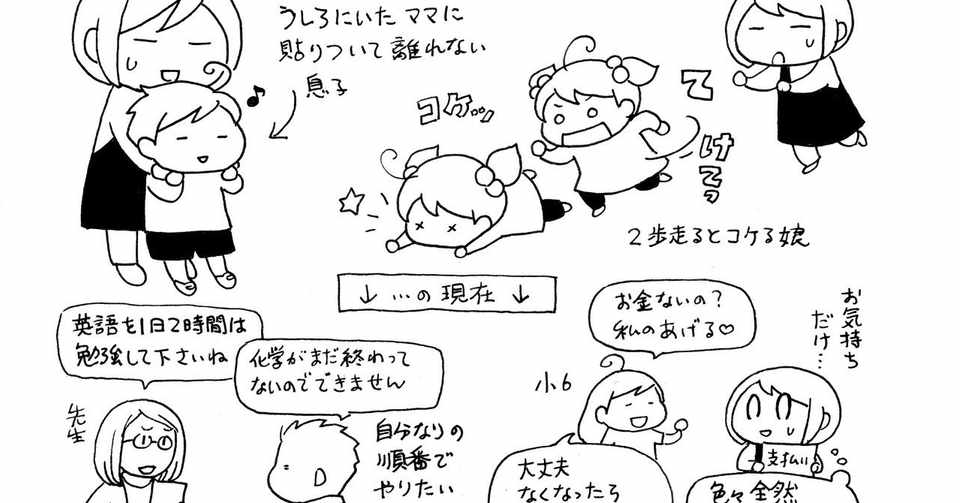 うしろにいたママに
貼りついて離れない
息子
コケッッ
てけてっ
2歩走るとコケる娘
↓…の現在↓
英語を1日2時間は
勉強して下さいね
先生
化学がまだ終わって
ないのでできません
自分なりの
順番で
やりたい
お金ないの?
私のあげる♡
小6
お気持ち
だけ…
支払い
大丈夫
なくなったら
色々全然